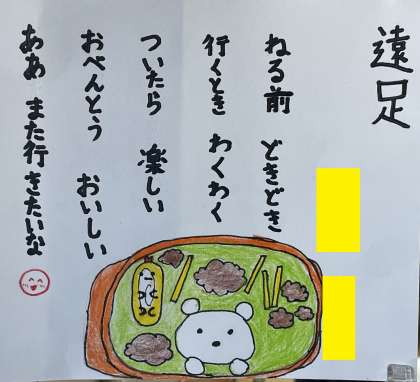 遠足
ねる前 どきどき
行くとき わくわく
ついたら 楽しい
おべんとう おいしい
ああ また行きたいな